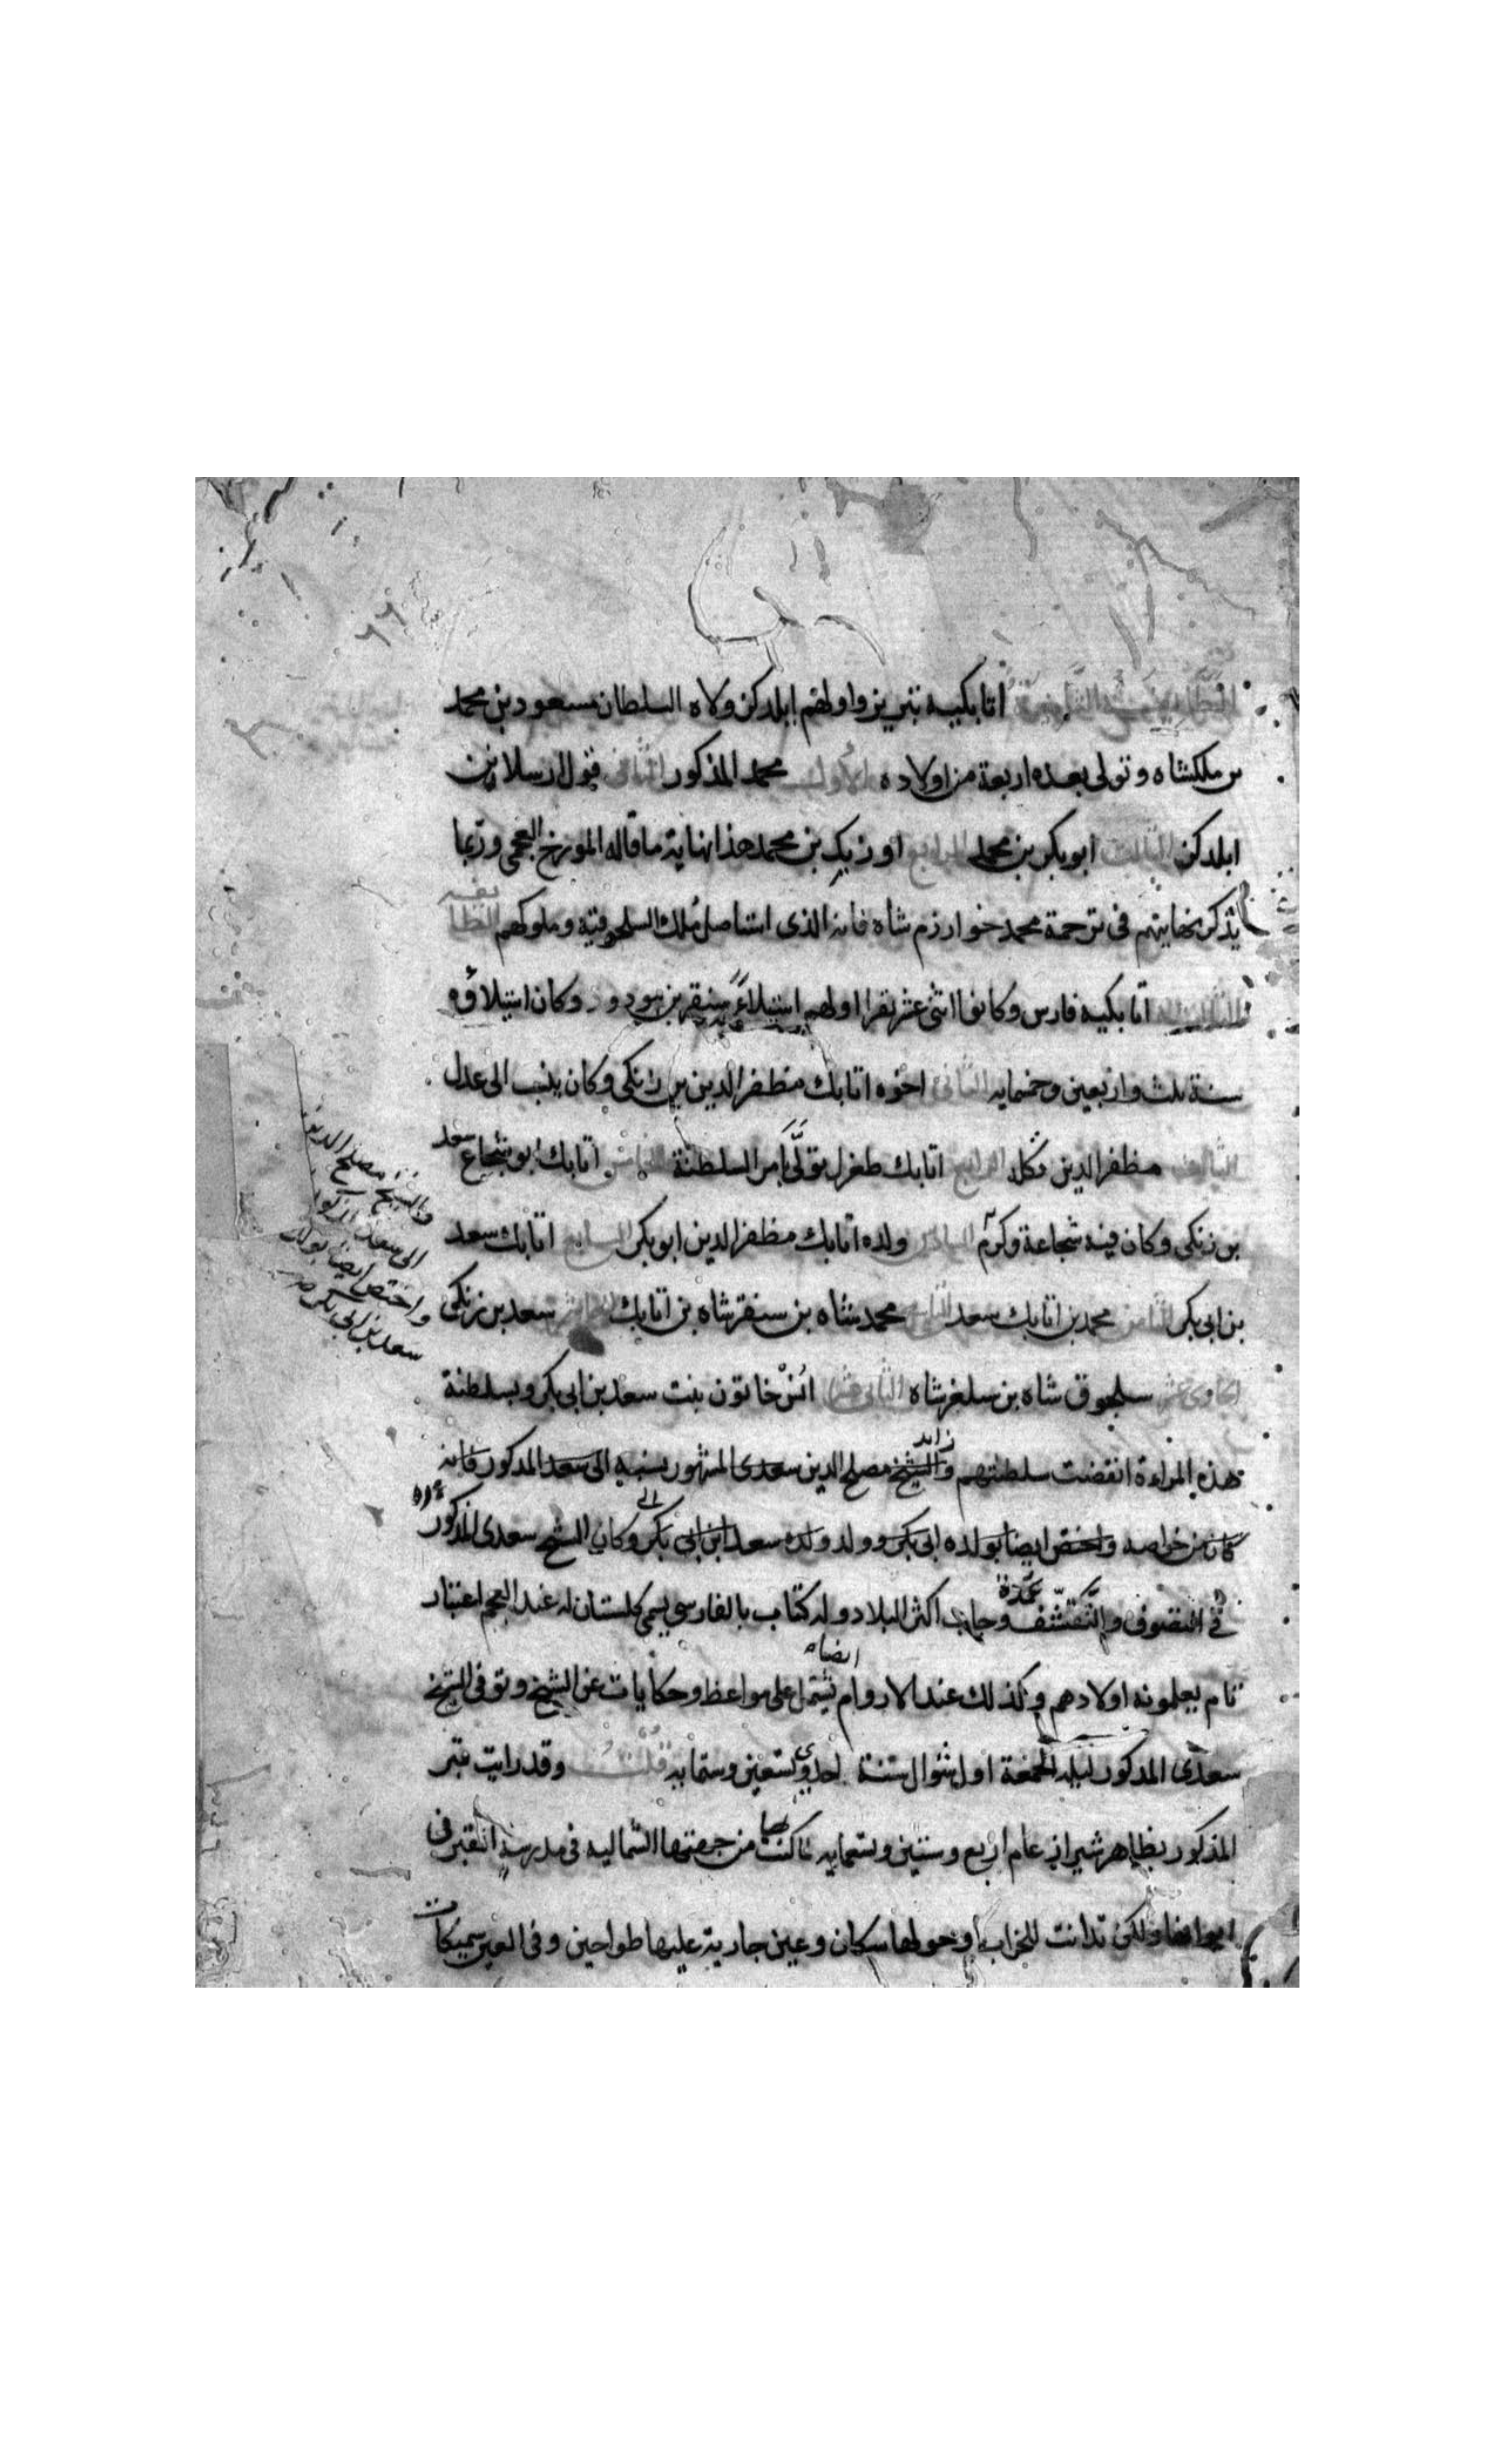 اتابكيه تبريز واولهم ايلدكن ولاه السلطان مسعود بن محمد
بن ملكشاه وتولى بعده اربعة من اولاده الاول محمد المذكور الثانى قزل ارسلان بن
ايلدكن الثالث ابو بكر بن محمد الرابع اوزبك بن محمد هذا نهاية ما قاله المورخ العجمى وربما
يذكر نهايتهم فى ترجمة محمد خوارزم شاه فانه الذى استاصل ملك السلجوقيه وملوكهم
اتابكيه فارس وكانوا اثنى عشر نفرا اولهم استيلاءً سنقر بن مودود وكان استيلاؤه
سنة ثلث واربعين وخمسمايه الثانى اخوه اتابك مظفر الدين بن زنكى وكان ينسب الى عدل
الثالث مظفر الدين تكله الرابع اتابك طغرل تولى امر السلطنة الخامس اتابك ابو شجاع سعد
بن زنكى وكان فيه شجاعة وكرم السادس ولده اتابك مظفر الدين ابو بكر السابع اتابك سعد
بن ابى بكر الثامن محمد بن اتابك سعد التاسع محمد شاه بن سنقر شاه بن اتابك سعد بن زنكى
الحادى عشر سلجوق شاه بن سلغر شاه الثانى عشر انس خاتون بنت سعد بن ابى بكر وبسلطنة
هذه المراءة انقضت سلطنتهم والشيخ مصلح الدين سعدى المشهور نسبه الى سعد المذكور فانه
كان من خواصه واختص ايضا بولده ابى بكر وولد ولده سعد ابن ابى بكر وكان الشيخ سعدى المذكور
فى التصوف والتقشف عمدة وجاب اكثر البلاد وله كتاب بالفارسى يسمى كلستان له عند العجم اعتبار
تام يعلمونه اولادهم وكذلك عند الاروام ايضا يشتمل على مواعظ وحكايات عن الشيخ وتوفى الشيخ
سعدى المذكور ليلة الجمعة اول شوال سنة احدى وتسعين وستمايه قلت وقد رايت قبر
المذكور بظاهر شيراز عام اربع وستين وتسمايه من جهتها الشماليه فى مدرسة القبر فى
ولكن تدانت للخراب وحولها سكان وعين جارية عليها طواحين وفى العين سميكات
والشيخ مصلح الدين
الى سعد المذكور
واختص ايضا بولده
سعد بن ابى بكر صح